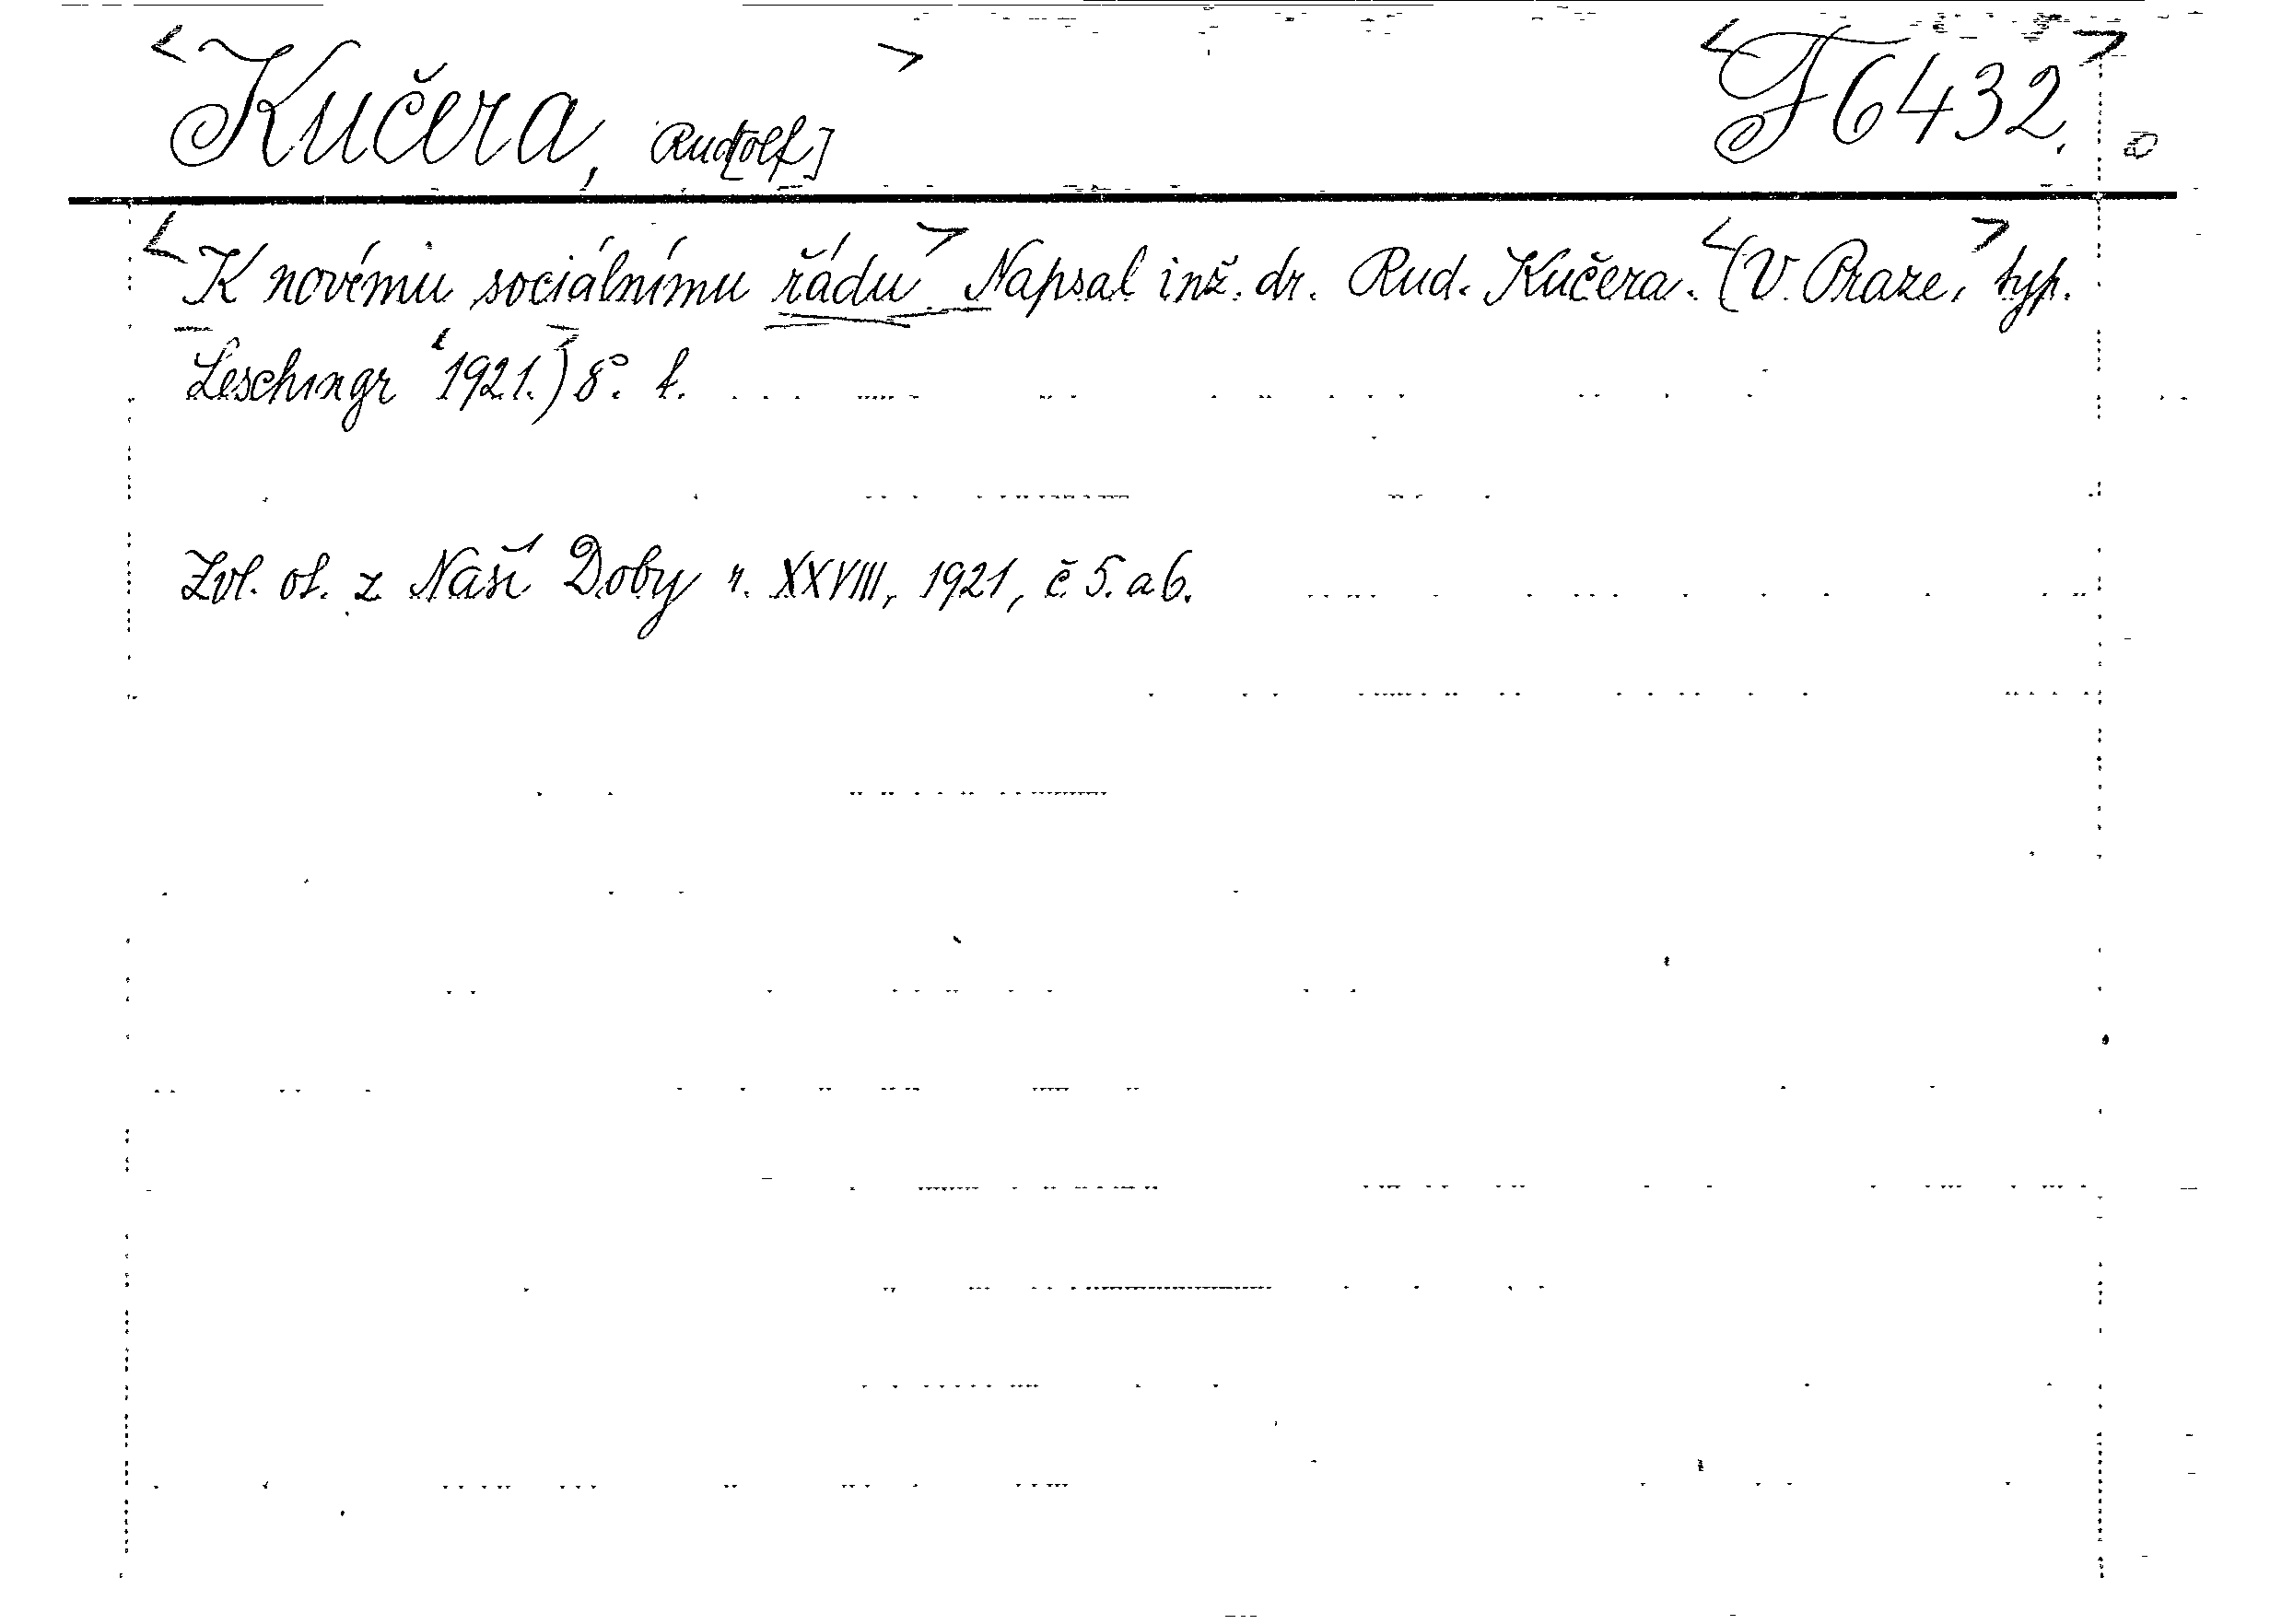 <Kučera, Rud[olf]> <F 6432.>
<K novému sociálnímu řádu> Napsal inž. dr. Rud. Kučera. <(V Praze,> typ.
Leschingr <1921.)> 8°. t.
Zvl. ot. z Naší Doby r. XXVIII, 1921, č 5. a 6.